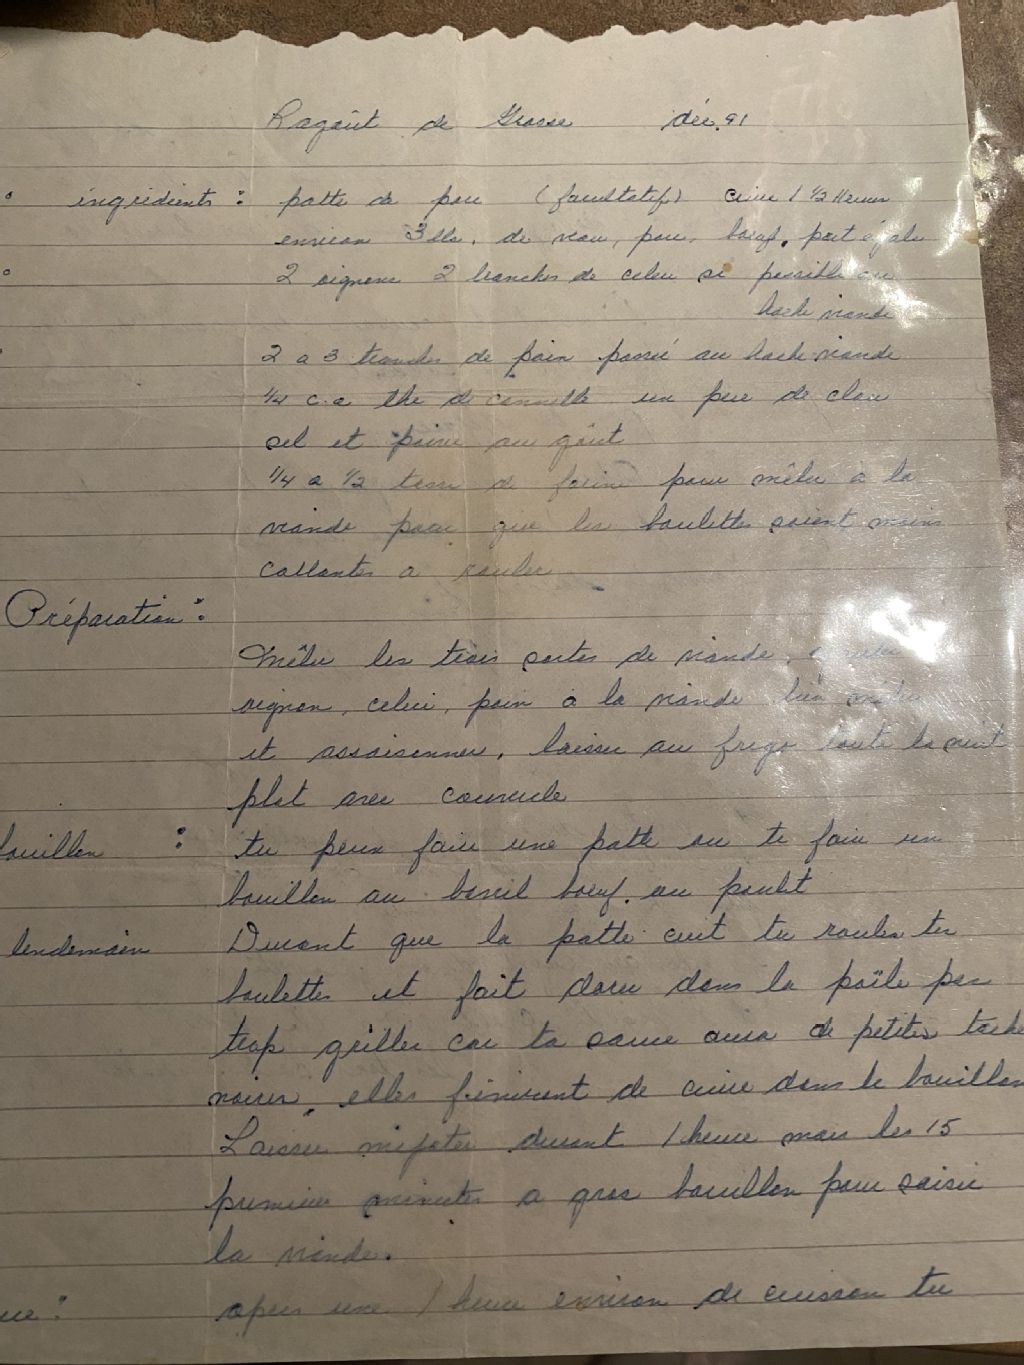 Ragoût de Grosse déc. 91
ingrédients : patte de porc (facultatif) cuire 1 1/2 Heure
environ 3 lbs. de veau, porc, boeuf. part égale
2 oignons 2 branches de celeri si possible au
hache viande
2 a 3 tranches de pain passé au hache viande
1/4 c. a thé de cannelle un peu de clou
sel et poivre au goût
1/4 a 1/2 tasse de farine pour mêler à la
viande pour que les boulettes soient moins
collantes a rouler
Préparation :
Mêler les trois sortes de viande,
oignon, celeri, pain à la viande bien mêler
et assaisonner, laisser au frigo toute la nuit
plat avec couvercle
bouillon : tu peux faire une patte ou te faire un
bouillon au bovril boeuf. ou poulet
lendemain Durant que la patte cuit tu roules tes
boulettes et fait dorer dans la poële pas
trop griller car ta sauce aura de petites tache
noires, elles finiront de cuire dans le bouillon
Laisser mijoter durant 1 heure mais les 15
premières minutes a gros bouillon pour saisir
la viande.
apres une 1 heure environ de cuisson tu